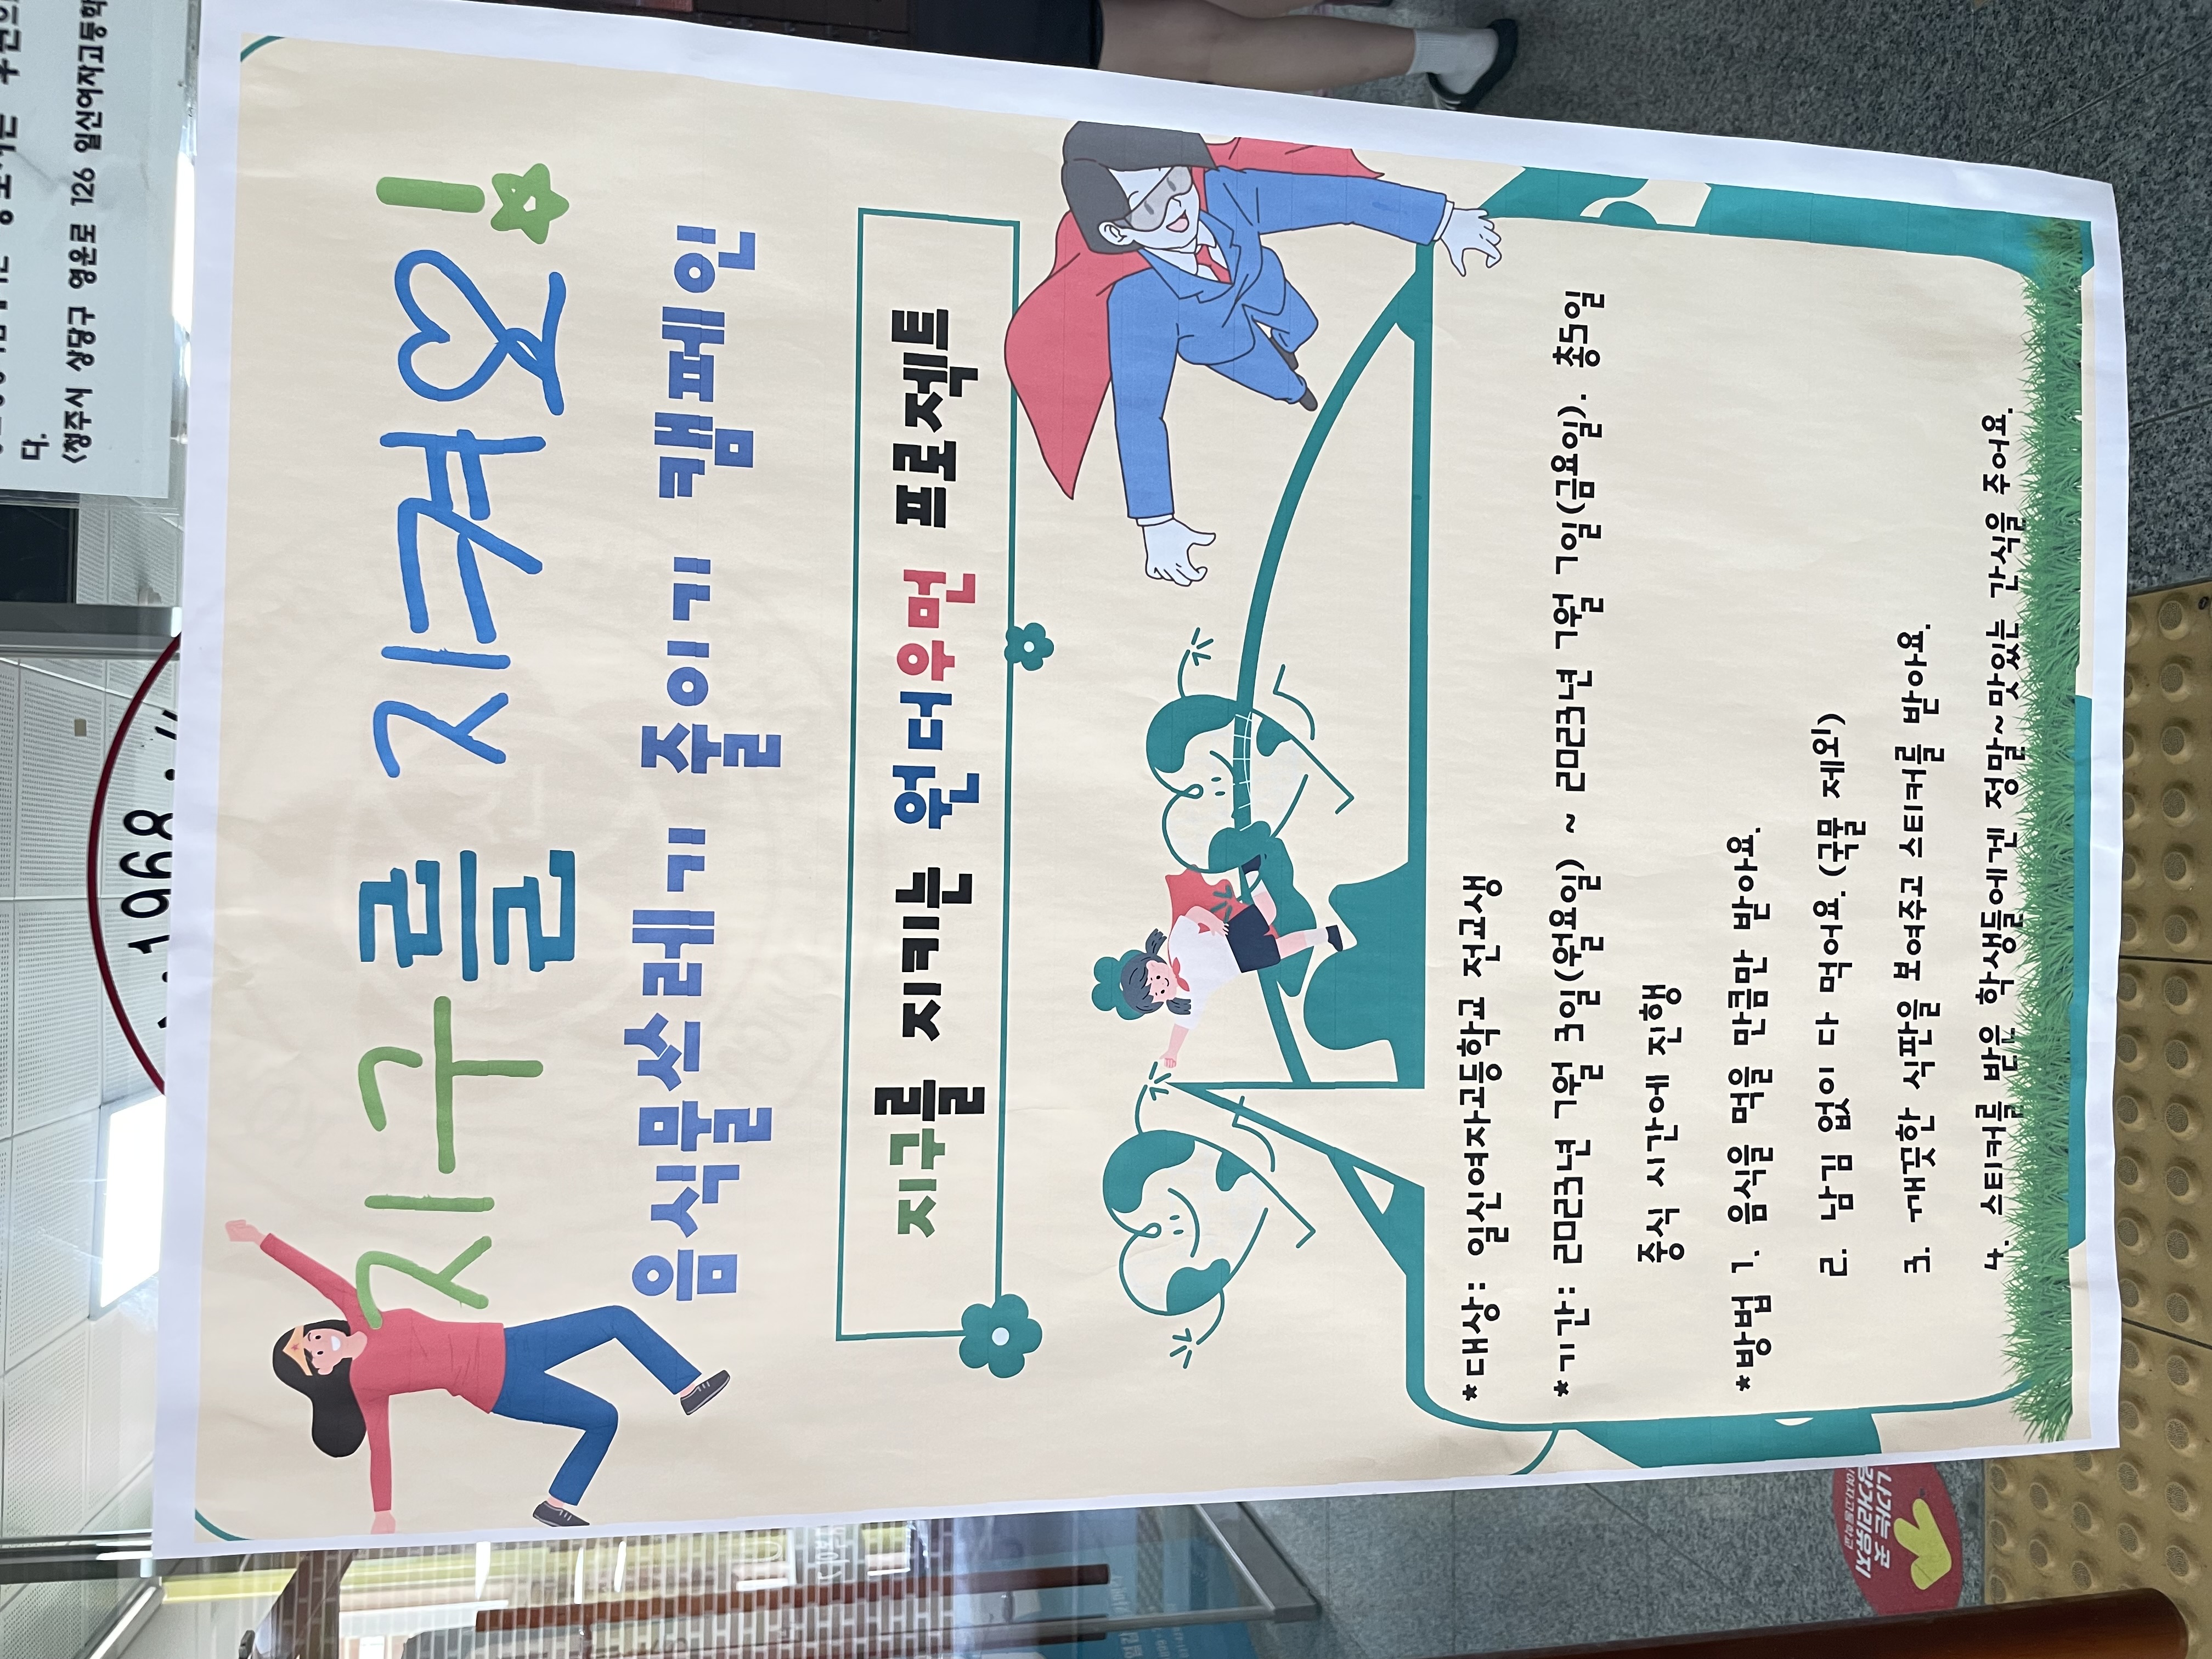 지구를 지켜요!
음식물쓰레기 줄이기 캠페인
지구를 지키는 원더우먼 프로젝트
*대상: 일신여자고등학교 전교생
*기간: 2023년 7월 3일(월요일) ~ 2023년 7월 7일(금요일). 총5일
중식 시간에 진행
*방법 1. 음식을 먹을 만큼만 받아요.
2. 남김 없이 다 먹어요. (국물 제외)
3. 깨끗한 식판을 보여주고 스티커를 받아요.
4. 스티커를 받은 학생들에겐 정말~맛있는 간식을 주어요.
다.
<청주시 상당구 영운로 126 일신여자고등학
1968
나가는 곳